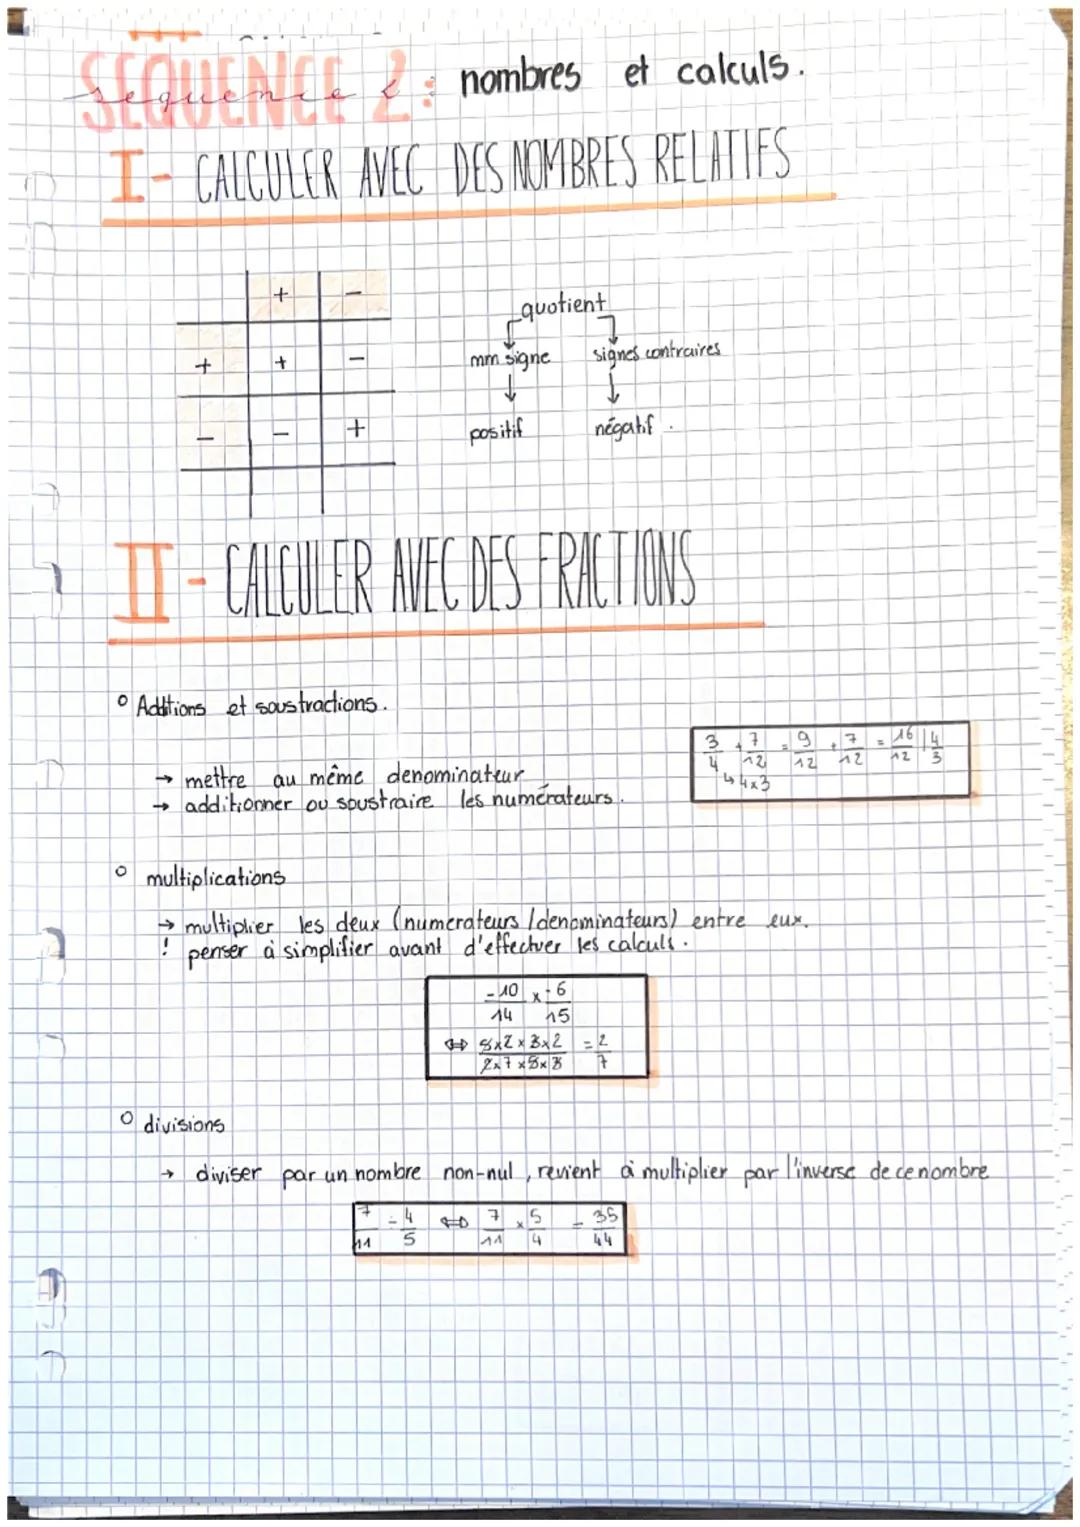 SEQUENCE 2 : nombres et calculs.
sequence
I- CALCULER AVEC DES NOMBRES RELATIFS
+ -
+ + -
- - +
quotient
mm signe signes contraires
↓ ↓
positif négatif.
II- CALCULER AVEC DES FRACTIONS
° Additions et soustractions.
→ mettre au même denominateur
→ additionner ou soustraire les numérateurs.
3/4 + 7/12 = 9/12 + 7/12 = 16/12 | 4/3
↳ 4x3
° multiplications
→ multiplier les deux (numerateurs/denominateurs) entre eux.
! penser à simplifier avant d'effectuer les calculs.
-10/14 x -6/15
⇔ 5x2x3x2/2x7x5x3 = 2/7
° divisions
→ diviser par un nombre non-nul, revient à multiplier par l'inverse de ce nombre
7/11 ÷ 4/5 ⇔ 7/11 x 5/4 = 35/44